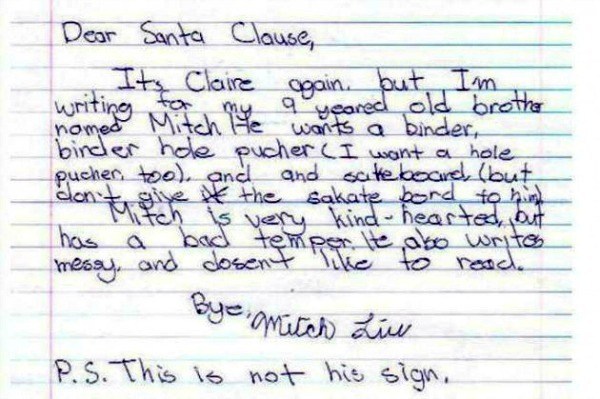 Dear Santa Clause,
Its Claire again. but I'm
writing for my 9 yeared old brother
named Mitch He wants a binder,
binder hole pucher (I want a hole
pucher, too), and and sateboard, (but
don't give it the sakate bord to him)
Mitch is very kind-hearted, but
has a bad temper. He also writes
messy, and dosent like to read.
Bye,
Mitch Liu
P.S. This is not his sign.